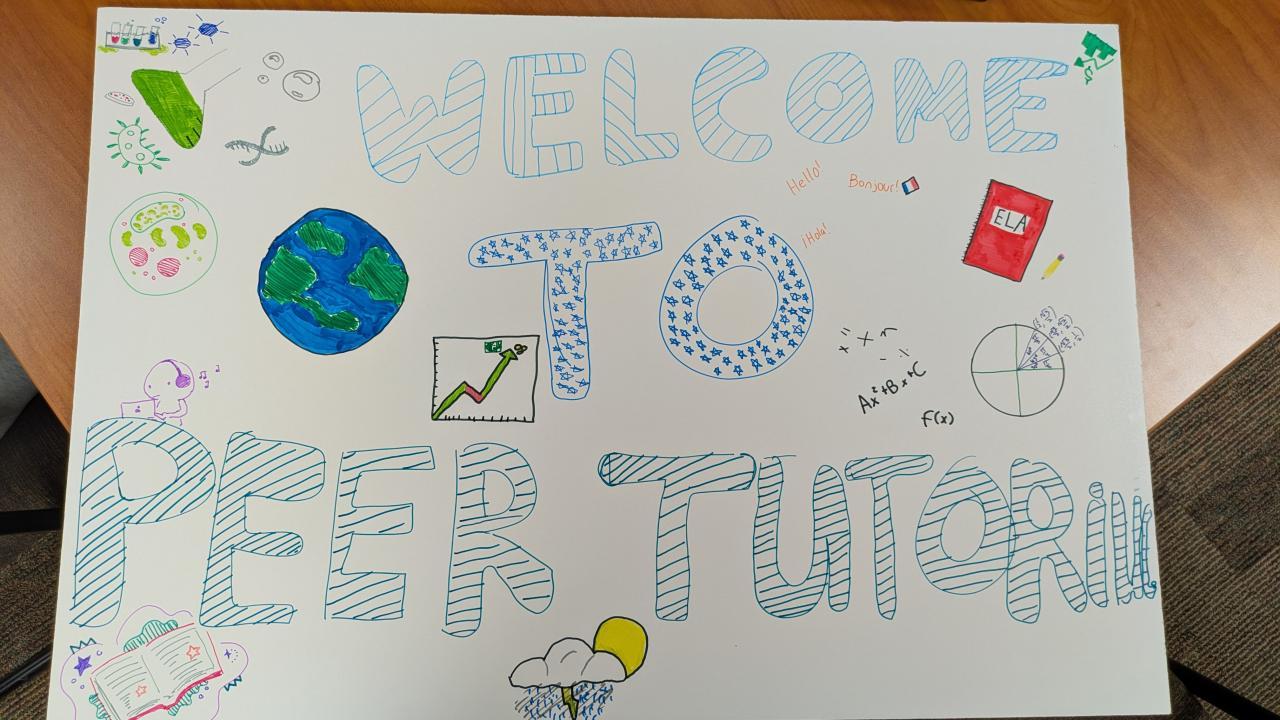 WELCOME
Hello! Bonjour!
¡Hola!
TO
ELA
Ax²+Bx+C
F(x)
PEER TUTORING